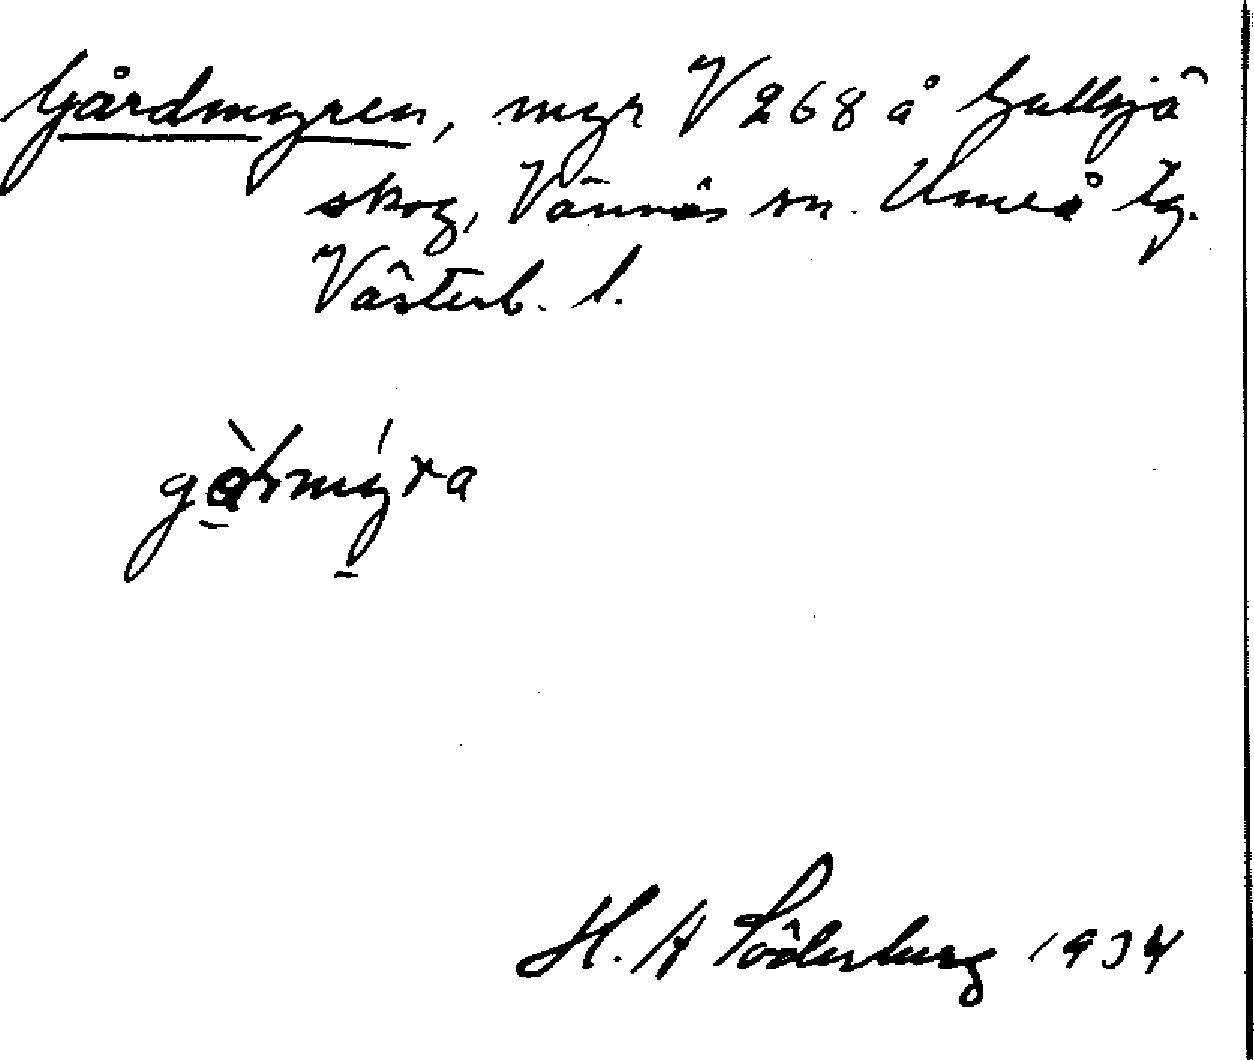 Gårdmyren, myr V 268 å Gullsjö
skog, Vännäs sn. Umeå tg.
Västerb. l.
gå̀rmýra
H. A Söderberg 1934